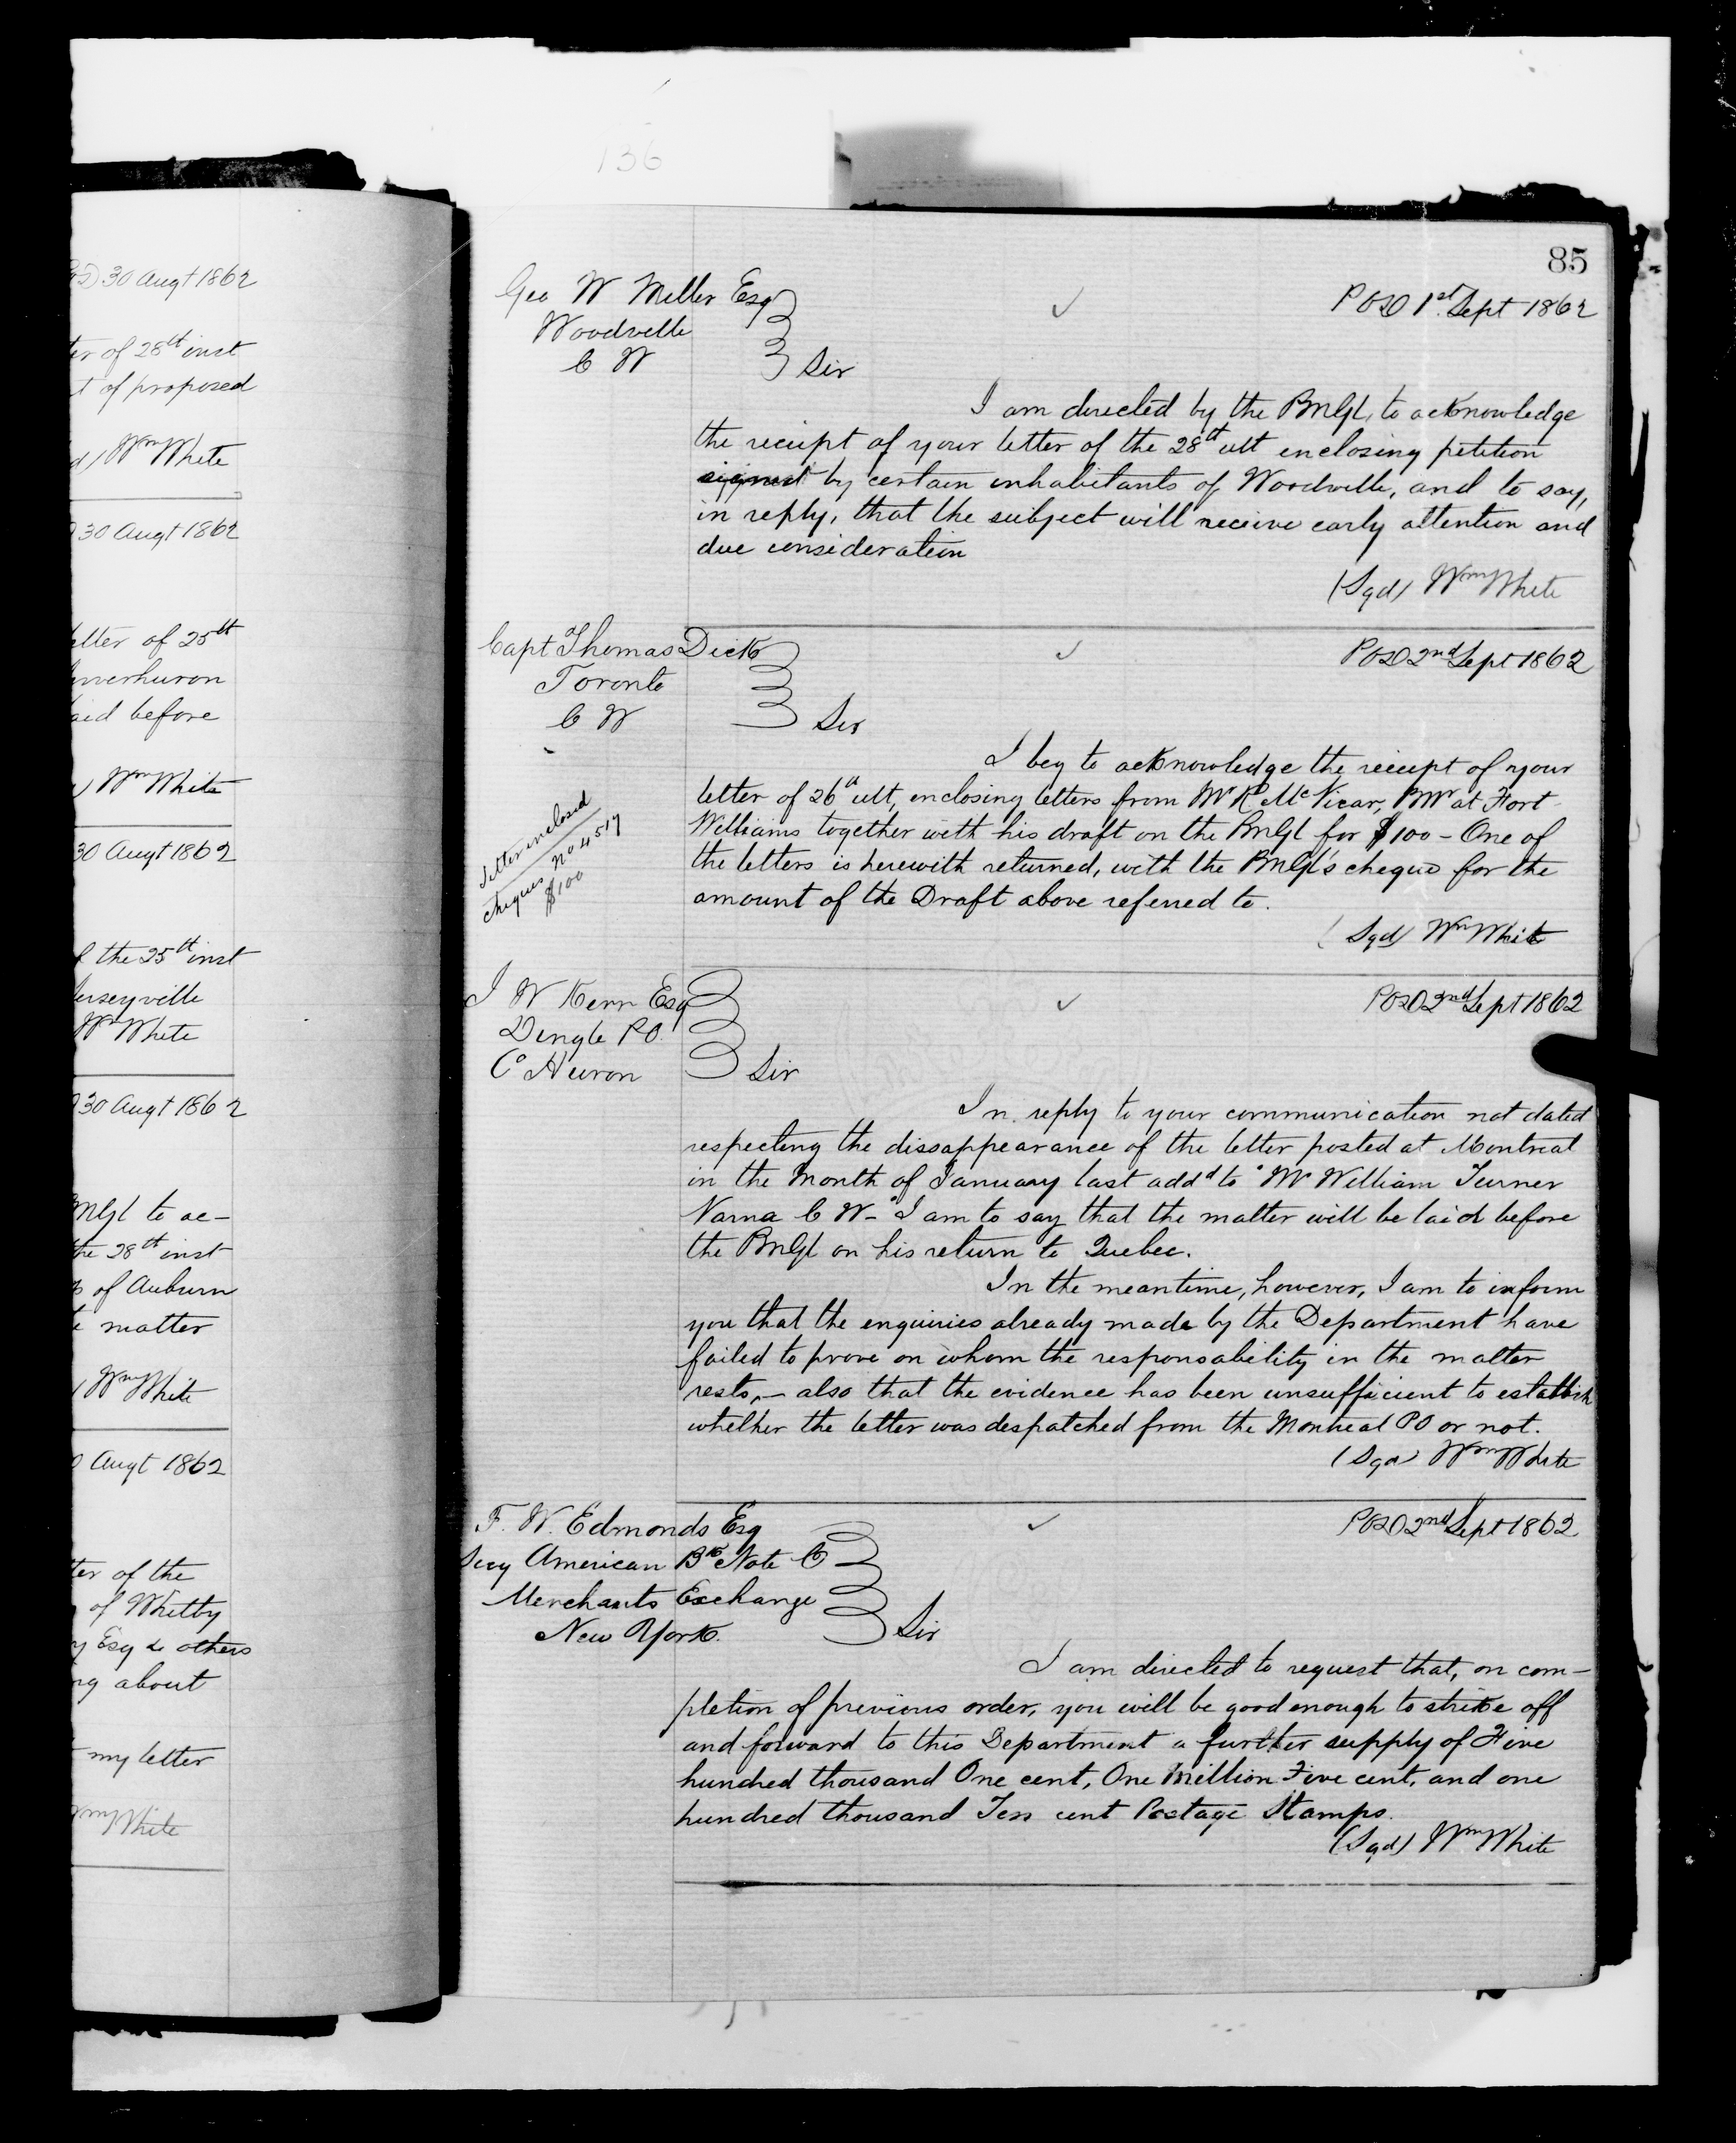 136
P.O.D 30 Augt 1862
ter of 28th inst
t of proposed
d) Wm White
30 Augt 1862
etter of 25th
aid before
) Wm White
30 Augt 1862
f the 25th inst
erseyville
Wm White
30 Augt 1862
PMGl to ac-
the 28th inst
of Auburn
matter
( Wm White
Augt 1862
ter of the
of Whitby
y Esq & others
ng about
my letter
Wm White
85
Geo W Miller Esq
Woodville
C W
Sir
POD 1st Sept 1862
I am directed by the PMGl, to acknowledge
the receipt of your letter of the 28th ult enclosing petition
signed by certain inhabitants of Woodville, and to say,
in reply, that the subject will receive early attention and
due consideration
(Sgd) Wm White
Capt Thomas Dick
Toronto
C W
Sir
POD 2nd Sept 1862
I beg to acknowledge the receipt of your
letter of 26th ult, enclosing letters from Mr Rd McVicar, PMr at Fort
Williams together with his draft on the PMGl for $100 - One of
the letters is herewith returned, with the PMGl's cheque for the
amount of the Draft above referred to.
Letter enclosed
cheques No 4517
$100
(Sgd) Wm White
J W Kerr Esq
Dingle PO.
Co Huron
Sir
POD 2nd Sept 1862
In reply to your communication not dated
respecting the dissappearance of the letter posted at Montreal
in the Month of January last addd to "Mr William Turner
Varna C W-" I am to say that the matter will be laid before
the PMGl on his return to Quebec.
In the meantime, however, I am to inform
you that the enquiries already made by the Department have
failed to prove on whom the responsability in the matter
rests, - also that the evidence has been unsufficient to establish
whether the letter was despatched from the Montreal PO or not.
(Sgd) Wm White
F. W. Edmonds Esq
Secy American Bk Note Co
Merchants Exchange
New York.
Sir
POD 2nd Sept 1862
I am directed to request that, on com-
pletion of previous order, you will be good enough to strike off
and forward to this Department a further supply of Five
hundred thousand One cent, One Million Five cent, and one
hundred thousand Ten cent Postage Stamps.
(Sgd) Wm White